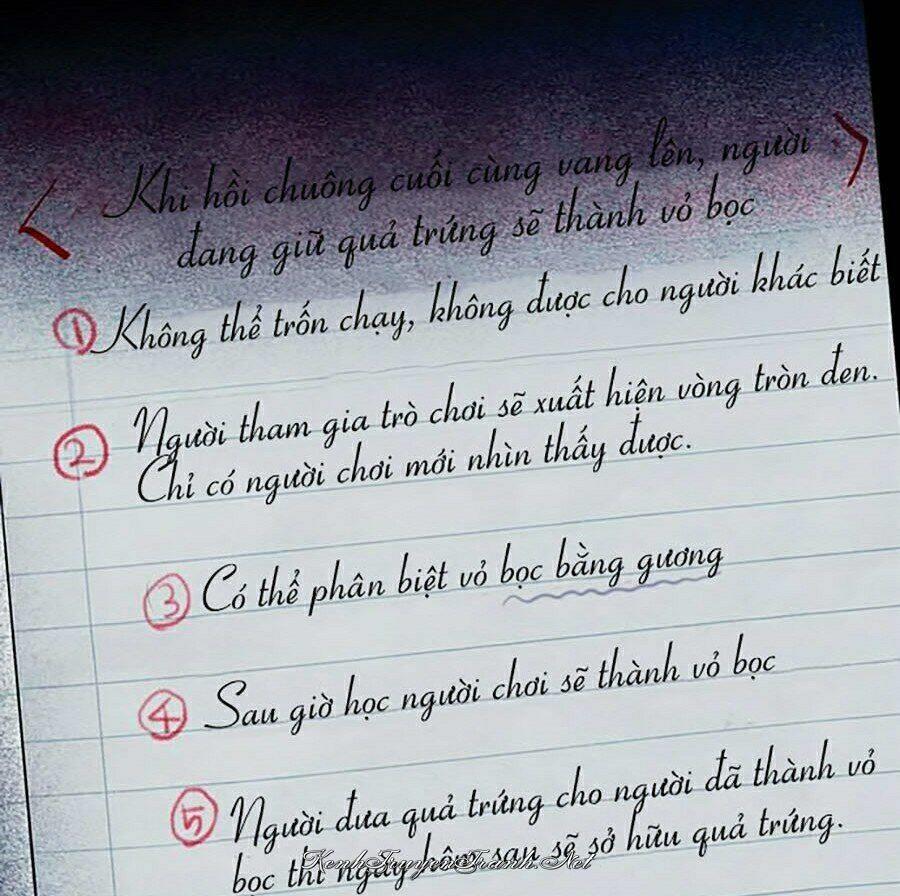 < Khi hồi chuông cuối cùng vang lên, người >
đang giữ quả trứng sẽ thành vỏ bọc
① Không thể trốn chạy, không được cho người khác biết
② Người tham gia trò chơi sẽ xuất hiện vòng tròn đen.
Chỉ có người chơi mới nhìn thấy được.
③ Có thể phân biệt vỏ bọc bằng gương
④ Sau giờ học người chơi sẽ thành vỏ bọc
⑤ Người đưa quả trứng cho người đã thành vỏ
bọc thì ngày hôm sau sẽ sở hữu quả trứng.
KenhTruyenTranh.Net